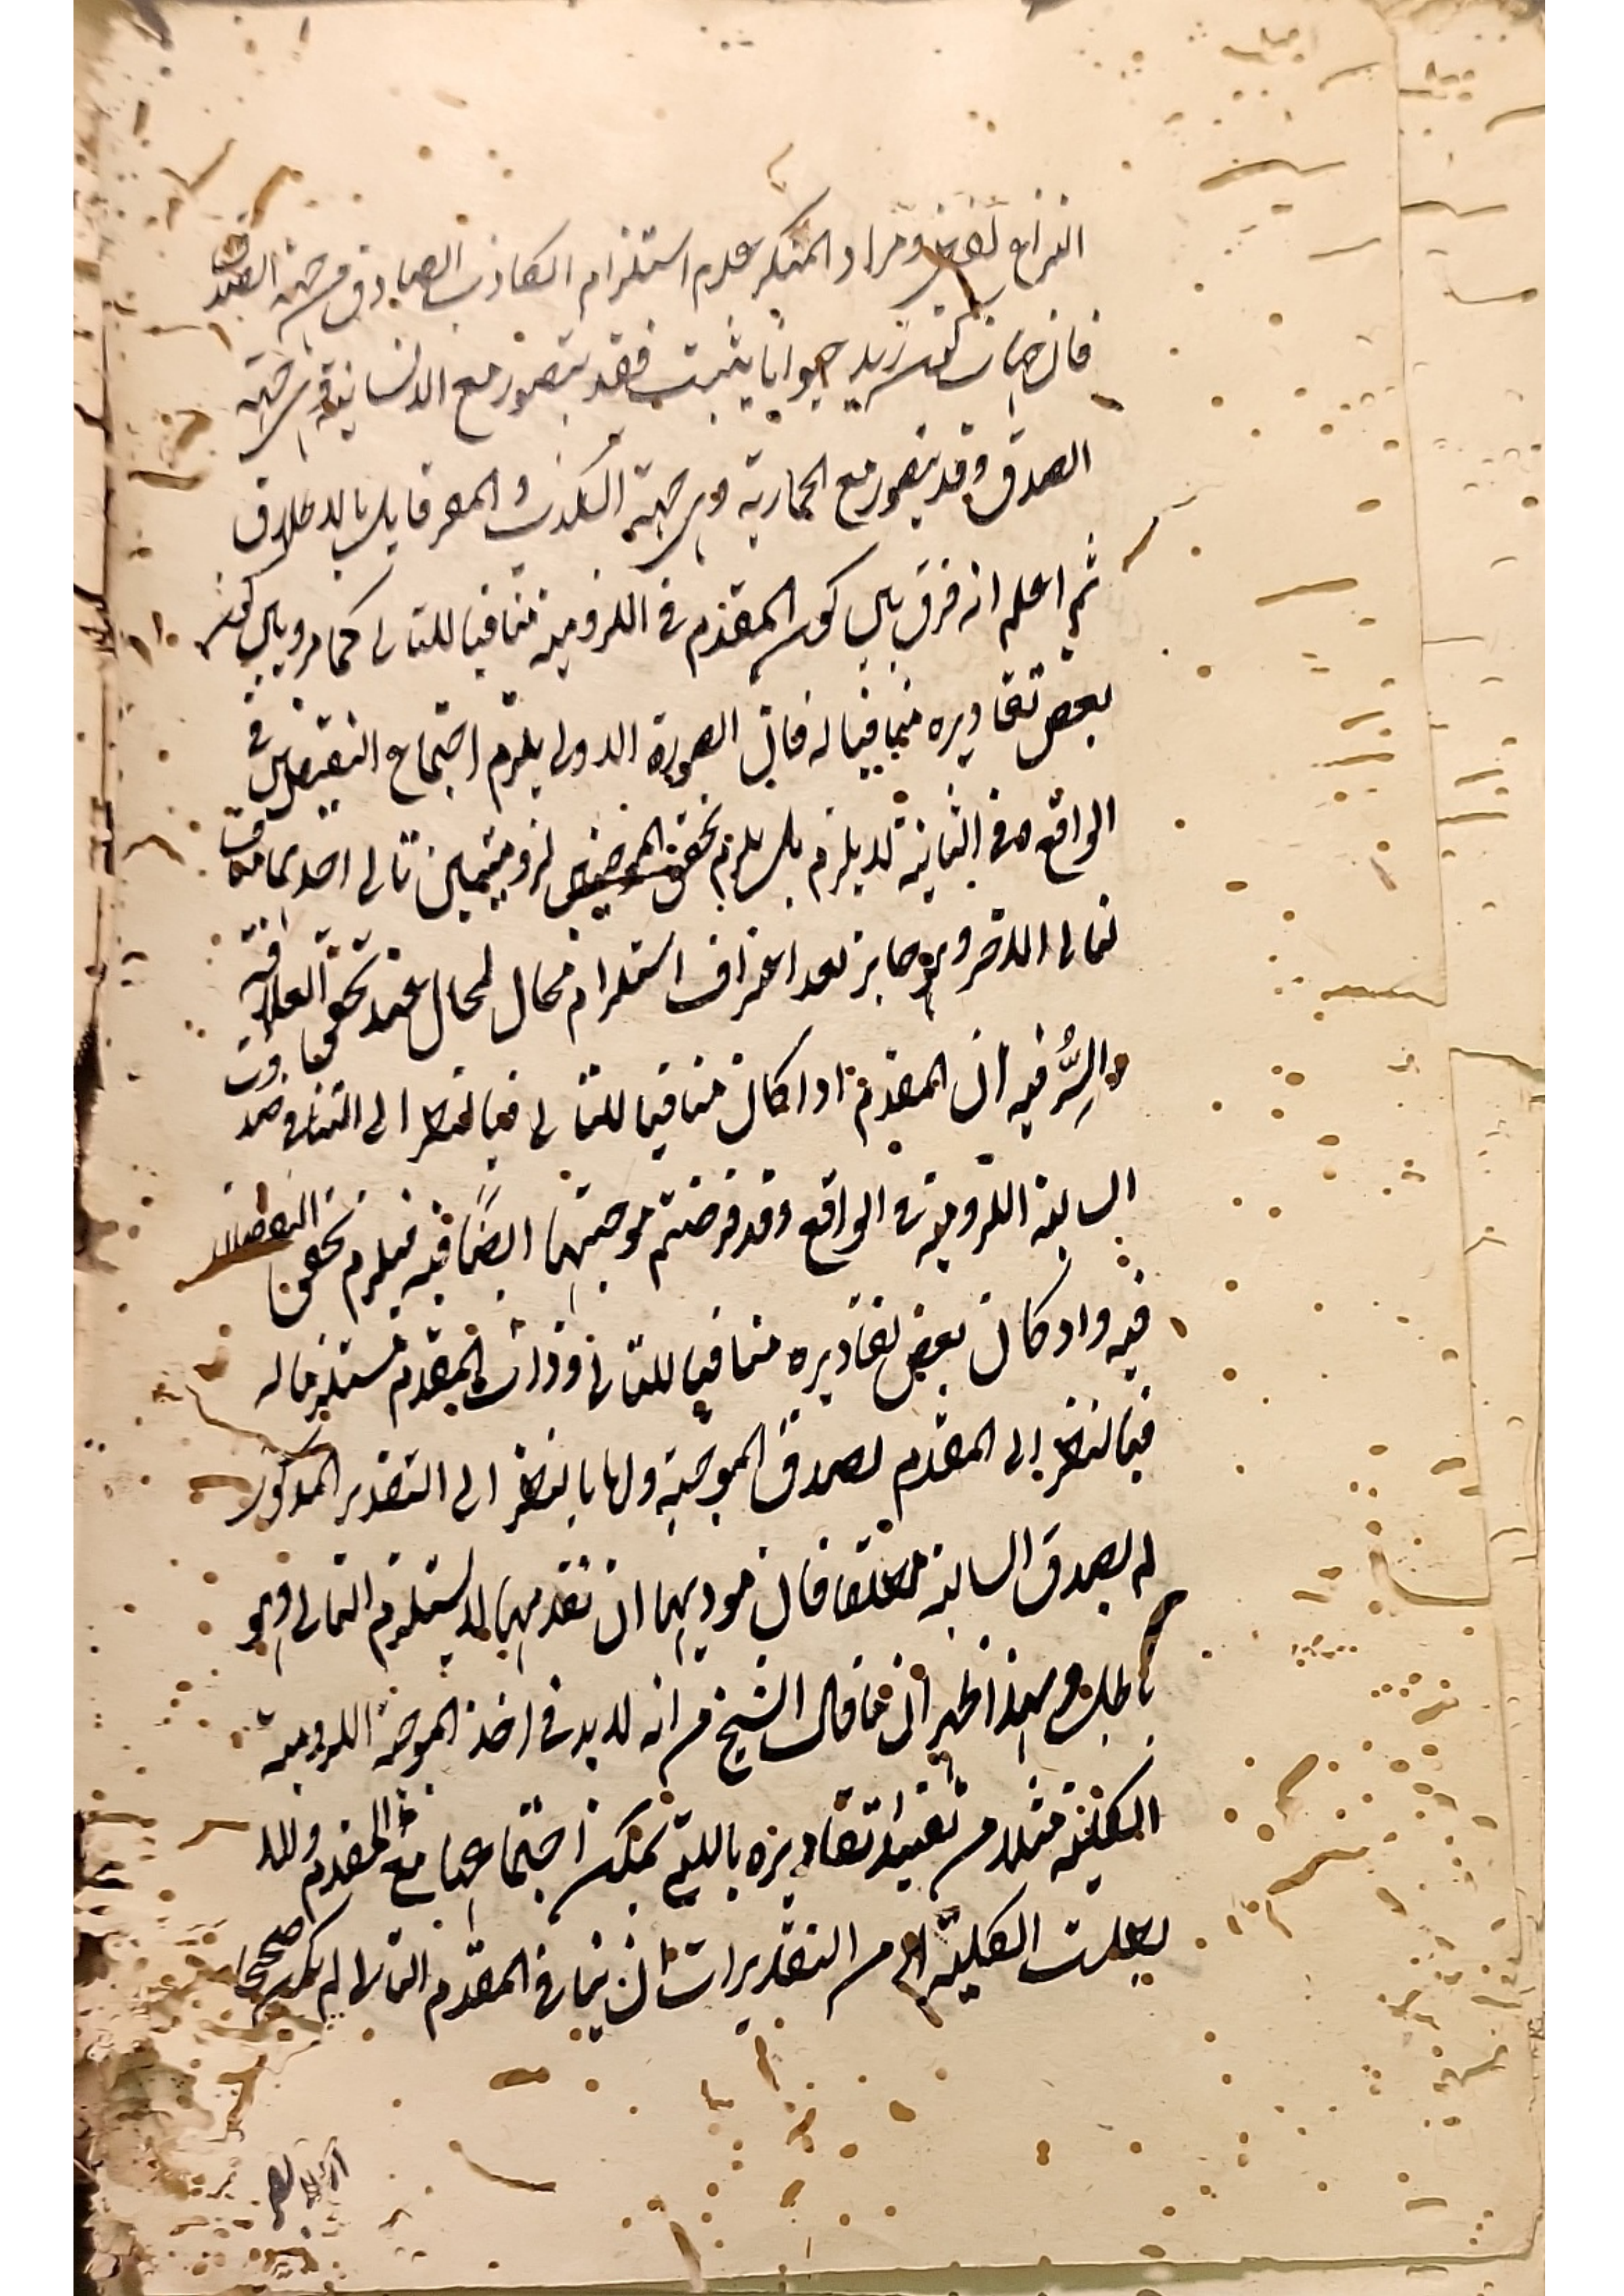 النزاع لفظي ومراد المنكر عدم استلزام الكاذب الصادق من جهة الصدق
فان جهات كون زيد حيوانا يثبت فقد يتصور مع الانسانية وهي جهة
الصدق وقد يتصور مع الحمارية وهي جهة الكذب والمعر قايل بالاطلاق
ثم اعلم انه فرق بين كون المقدم في اللزومية منافيا للتالى كما مر وبين كون
بعض تقاديره منافيا له فان الصورة الاولى يلزم اجتماع النقيضين في
الواقع وفي الثانية لا يلزم بل يلزم تحقق لزوميتين تالى احدىهما
لتالى الاخر وهو جايز بعد اعتراف استلزام محال لمحال عند تحقق العلاقة
والسر فيه ان المقدم اذا كان منافيا للتالى فبالنظر الى التنافى صدقت
السالبة اللزومية في الواقع وقد فرضتم موجبتها ايضا فيه فيلزم تحقق النقيضان
فيه واذ كان بعض تقاديره منافيا للتالى وذات المقدم مستلزما له
فبالنظر الى المقدم لصدق الموجبة ولها بالنظر الى التقدير المذكور
لم يصدق السالبة مطلقا فان موديها ان تقدمها لا يستلزم التالى وهو
باطل وبهذا ظهر ان ما قال الشيخ من انه لا بد في اخذ الموجبة اللزومية
الكلية مثلا من تقييد تقاديره باللتي يمكن اجتماعها مع المقدم والا
بطلت الكلية اذ من التقديرات ان ينافى المقدم التالى لم يكن صحيحا